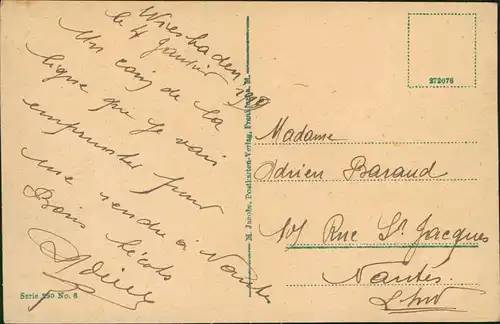 Wiesbaden
le 4 Janvier
Un coin de la
ligne que je vais
emprunter pour
me rendre à Nantes
Bons
Adrien
Serie 290 No. 6
M. Jacobs, Postkarten-Verlag, Frankfurt a. M.
272076
Madame
Adrien Baraud
Rue St Jacques
Nantes